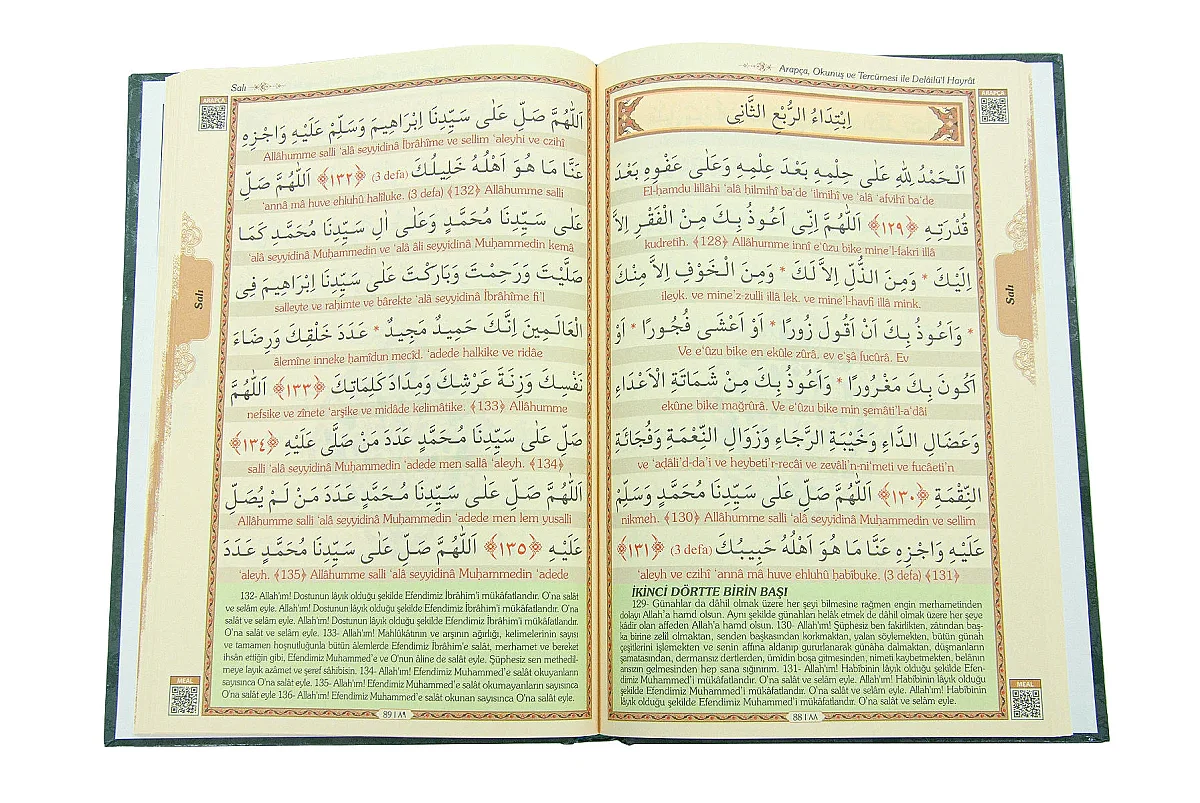 Arapça, Okunuş ve Tercümesi ile Delâilü'l Hayrât
ARAPÇA
اِبْتِدَاءُ الرُّبْعِ الثَّانِى
اَلْحَمْدُ لِلّٰهِ عَلٰى حِلْمِهِ بَعْدَ عِلْمِهِ وَعَلٰى عَفْوِهِ بَعْدَ
El-ḥamdu lillâhi ‘alâ hilmihî ba‘de ‘ilmihî ve ‘alâ ‘afvihî ba‘de
قُدْرَتِهِ ﴿١٢٩﴾ اَللّٰهُمَّ اِنِّى اَعُوذُ بِكَ مِنَ الْفَقْرِ اِلَّا
kudretih. ﴾128﴿ Allâhumme innî e‘ûzu bike mine'l-fakri illâ
اِلَيْكَ * وَمِنَ الذُّلِّ اِلَّا لَكَ * وَمِنَ الْخَوْفِ اِلَّا مِنْكَ
ileyk. ve mine'z-zulli illâ lek. ve mine'l-havfi illâ mink.
* وَاَعُوذُ بِكَ اَنْ اَقُولَ زُورًا * اَوْ اَغْشٰى فُجُورًا * اَوْ
Ve e‘ûzu bike en ekûle zûrâ. ev e'şâ fucûrâ. Ev
اَكُونَ بِكَ مَغْرُورًا * وَاَعُوذُ بِكَ مِنْ شَمَاتَةِ الْاَعْدَاءِ
ekûne bike mağrûrâ. Ve e‘ûzu bike min şemâti'l-a‘dâi
وَعَضَالِ الدَّاءِ وَخَيْبَةِ الرَّجَاءِ وَزَوَالِ النِّعْمَةِ وَفُجَائَةِ
ve ‘aḍâli'd-da'i ve heybeti'r-recâi ve zevâli'n-ni'meti ve fucâeti'n
النِّقْمَةِ ﴿١٣٠﴾ اَللّٰهُمَّ صَلِّ عَلٰى سَيِّدِنَا مُحَمَّدٍ وَسَلِّمْ
nikmeh. ﴾130﴿ Allâhumme salli ‘alâ seyyidinâ Muḥammedin ve sellim
عَلَيْهِ وَاجْزِهِ عَنَّا مَا هُوَ اَهْلُهُ حَبِيبُكَ (3 defa) ﴿١٣١﴾
‘aleyh ve czihî ‘annâ mâ huve ehluhû ḥabîbuke. (3 defa) ﴾131﴿
İKİNCİ DÖRTTE BİRİN BAŞI
129- Günahlar da dâhil olmak üzere her şeyi bilmesine rağmen engin merhametinden
dolayı Allah'a hamd olsun. Aynı şekilde günahları helâk etmek de dâhil olmak üzere her şeye
kâdir olan affeden Allah'a hamd olsun. 130- Allah'ım! Şüphesiz ben fakirlikten, zâtından baş-
ka birine zelil olmaktan, senden başkasından korkmaktan, yalan söylemekten, bütün günah
çeşitlerini işlemekten ve senin affına aldanıp gururlanarak günaha dalmaktan, düşmanların
şamatasından, dermansız dertlerden, ümidin boşa gitmesinden, nimeti kaybetmekten, belânın
ansızın gelmesinden hep sana sığınırım. 131- Allah'ım! Habîbinin lâyık olduğu şekilde Efen-
dimiz Muhammed'i mükâfatlandır. O'na salât ve selâm eyle. Allah'ım! Habîbinin lâyık olduğu
şekilde Efendimiz Muhammed'i mükâfatlandır. O'na salât ve selâm eyle. Allah'ım! Habîbinin
lâyık olduğu şekilde Efendimiz Muhammed'i mükâfatlandır. O'na salât ve selâm eyle.
MEAL
88 | ٨٨
Salı
Salı
ARAPÇA
اَللّٰهُمَّ صَلِّ عَلٰى سَيِّدِنَا اِبْرَاهِيمَ وَسَلِّمْ عَلَيْهِ وَاجْزِهِ
Allâhumme salli ‘alâ seyyidinâ İbrâhîme ve sellim ‘aleyhi ve czihî
عَنَّا مَا هُوَ اَهْلُهُ خَلِيلُكَ (3 defa) ﴿١٣٢﴾ اَللّٰهُمَّ صَلِّ
‘annâ mâ huve ehluhû halîluke. (3 defa) ﴾132﴿ Allâhumme salli
عَلٰى سَيِّدِنَا مُحَمَّدٍ وَعَلٰى اٰلِ سَيِّدِنَا مُحَمَّدٍ كَمَا
‘alâ seyyidinâ Muḥammedin ve ‘alâ âli seyyidinâ Muḥammedin kemâ
صَلَّيْتَ وَرَحِمْتَ وَبَارَكْتَ عَلٰى سَيِّدِنَا اِبْرَاهِيمَ فِى
salleyte ve raḥimte ve bârekte ‘alâ seyyidinâ İbrâhîme fi'l
الْعَالَمِينَ اِنَّكَ حَمِيدٌ مَجِيدٌ * عَدَدَ خَلْقِكَ وَرِضَاءَ
âlemîne inneke ḥamîdun mecîd. ‘adede halkike ve ridâe
نَفْسِكَ وَزِنَةَ عَرْشِكَ وَمِدَادَ كَلِمَاتِكَ ﴿١٣٣﴾ اَللّٰهُمَّ
nefsike ve zînete ‘arşike ve midâde kelimâtike. ﴾133﴿ Allâhumme
صَلِّ عَلٰى سَيِّدِنَا مُحَمَّدٍ عَدَدَ مَنْ صَلّٰى عَلَيْهِ ﴿١٣٤﴾
salli ‘alâ seyyidinâ Muḥammedin ‘adede men sallâ ‘aleyh. ﴾134﴿
اَللّٰهُمَّ صَلِّ عَلٰى سَيِّدِنَا مُحَمَّدٍ عَدَدَ مَنْ لَمْ يُصَلِّ
Allâhumme salli ‘alâ seyyidinâ Muḥammedin ‘adede men lem yusalli
عَلَيْهِ ﴿١٣٥﴾ اَللّٰهُمَّ صَلِّ عَلٰى سَيِّدِنَا مُحَمَّدٍ عَدَدَ
‘aleyh. ﴾135﴿ Allâhumme salli ‘alâ seyyidinâ Muḥammedin ‘adede
132- Allah'ım! Dostunun lâyık olduğu şekilde Efendimiz İbrâhîm'i mükâfatlandır. O'na salât
ve selâm eyle. Allah'ım! Dostunun lâyık olduğu şekilde Efendimiz İbrâhîm'i mükâfatlandır. O'na
salât ve selâm eyle. Allah'ım! Dostunun lâyık olduğu şekilde Efendimiz İbrâhîm'i mükâfatlandır.
O'na salât ve selâm eyle. 133- Allah'ım! Mahlûkâtının ve arşının ağırlığı, kelimelerinin sayısı
ve tamamen hoşnutluğunla bütün âlemlerde Efendimiz İbrâhîm'e salât, merhamet ve bereket
ihsân ettiğin gibi, Efendimiz Muhammed'e ve O'nun âline de salât eyle. Şüphesiz sen methedil-
meye layık azamet ve şeref sâhibisin. 134- Allah'ım! Efendimiz Muhammed'e salât okuyanların
sayısınca O'na salât eyle. 135- Allah'ım! Efendimiz Muhammed'e salât okumayanların sayısınca
O'na salât eyle 136- Allah'ım! Efendimiz Muhammed'e salât okunan sayısınca O'na salât eyle.
MEAL
89 | ٨٩
Salı